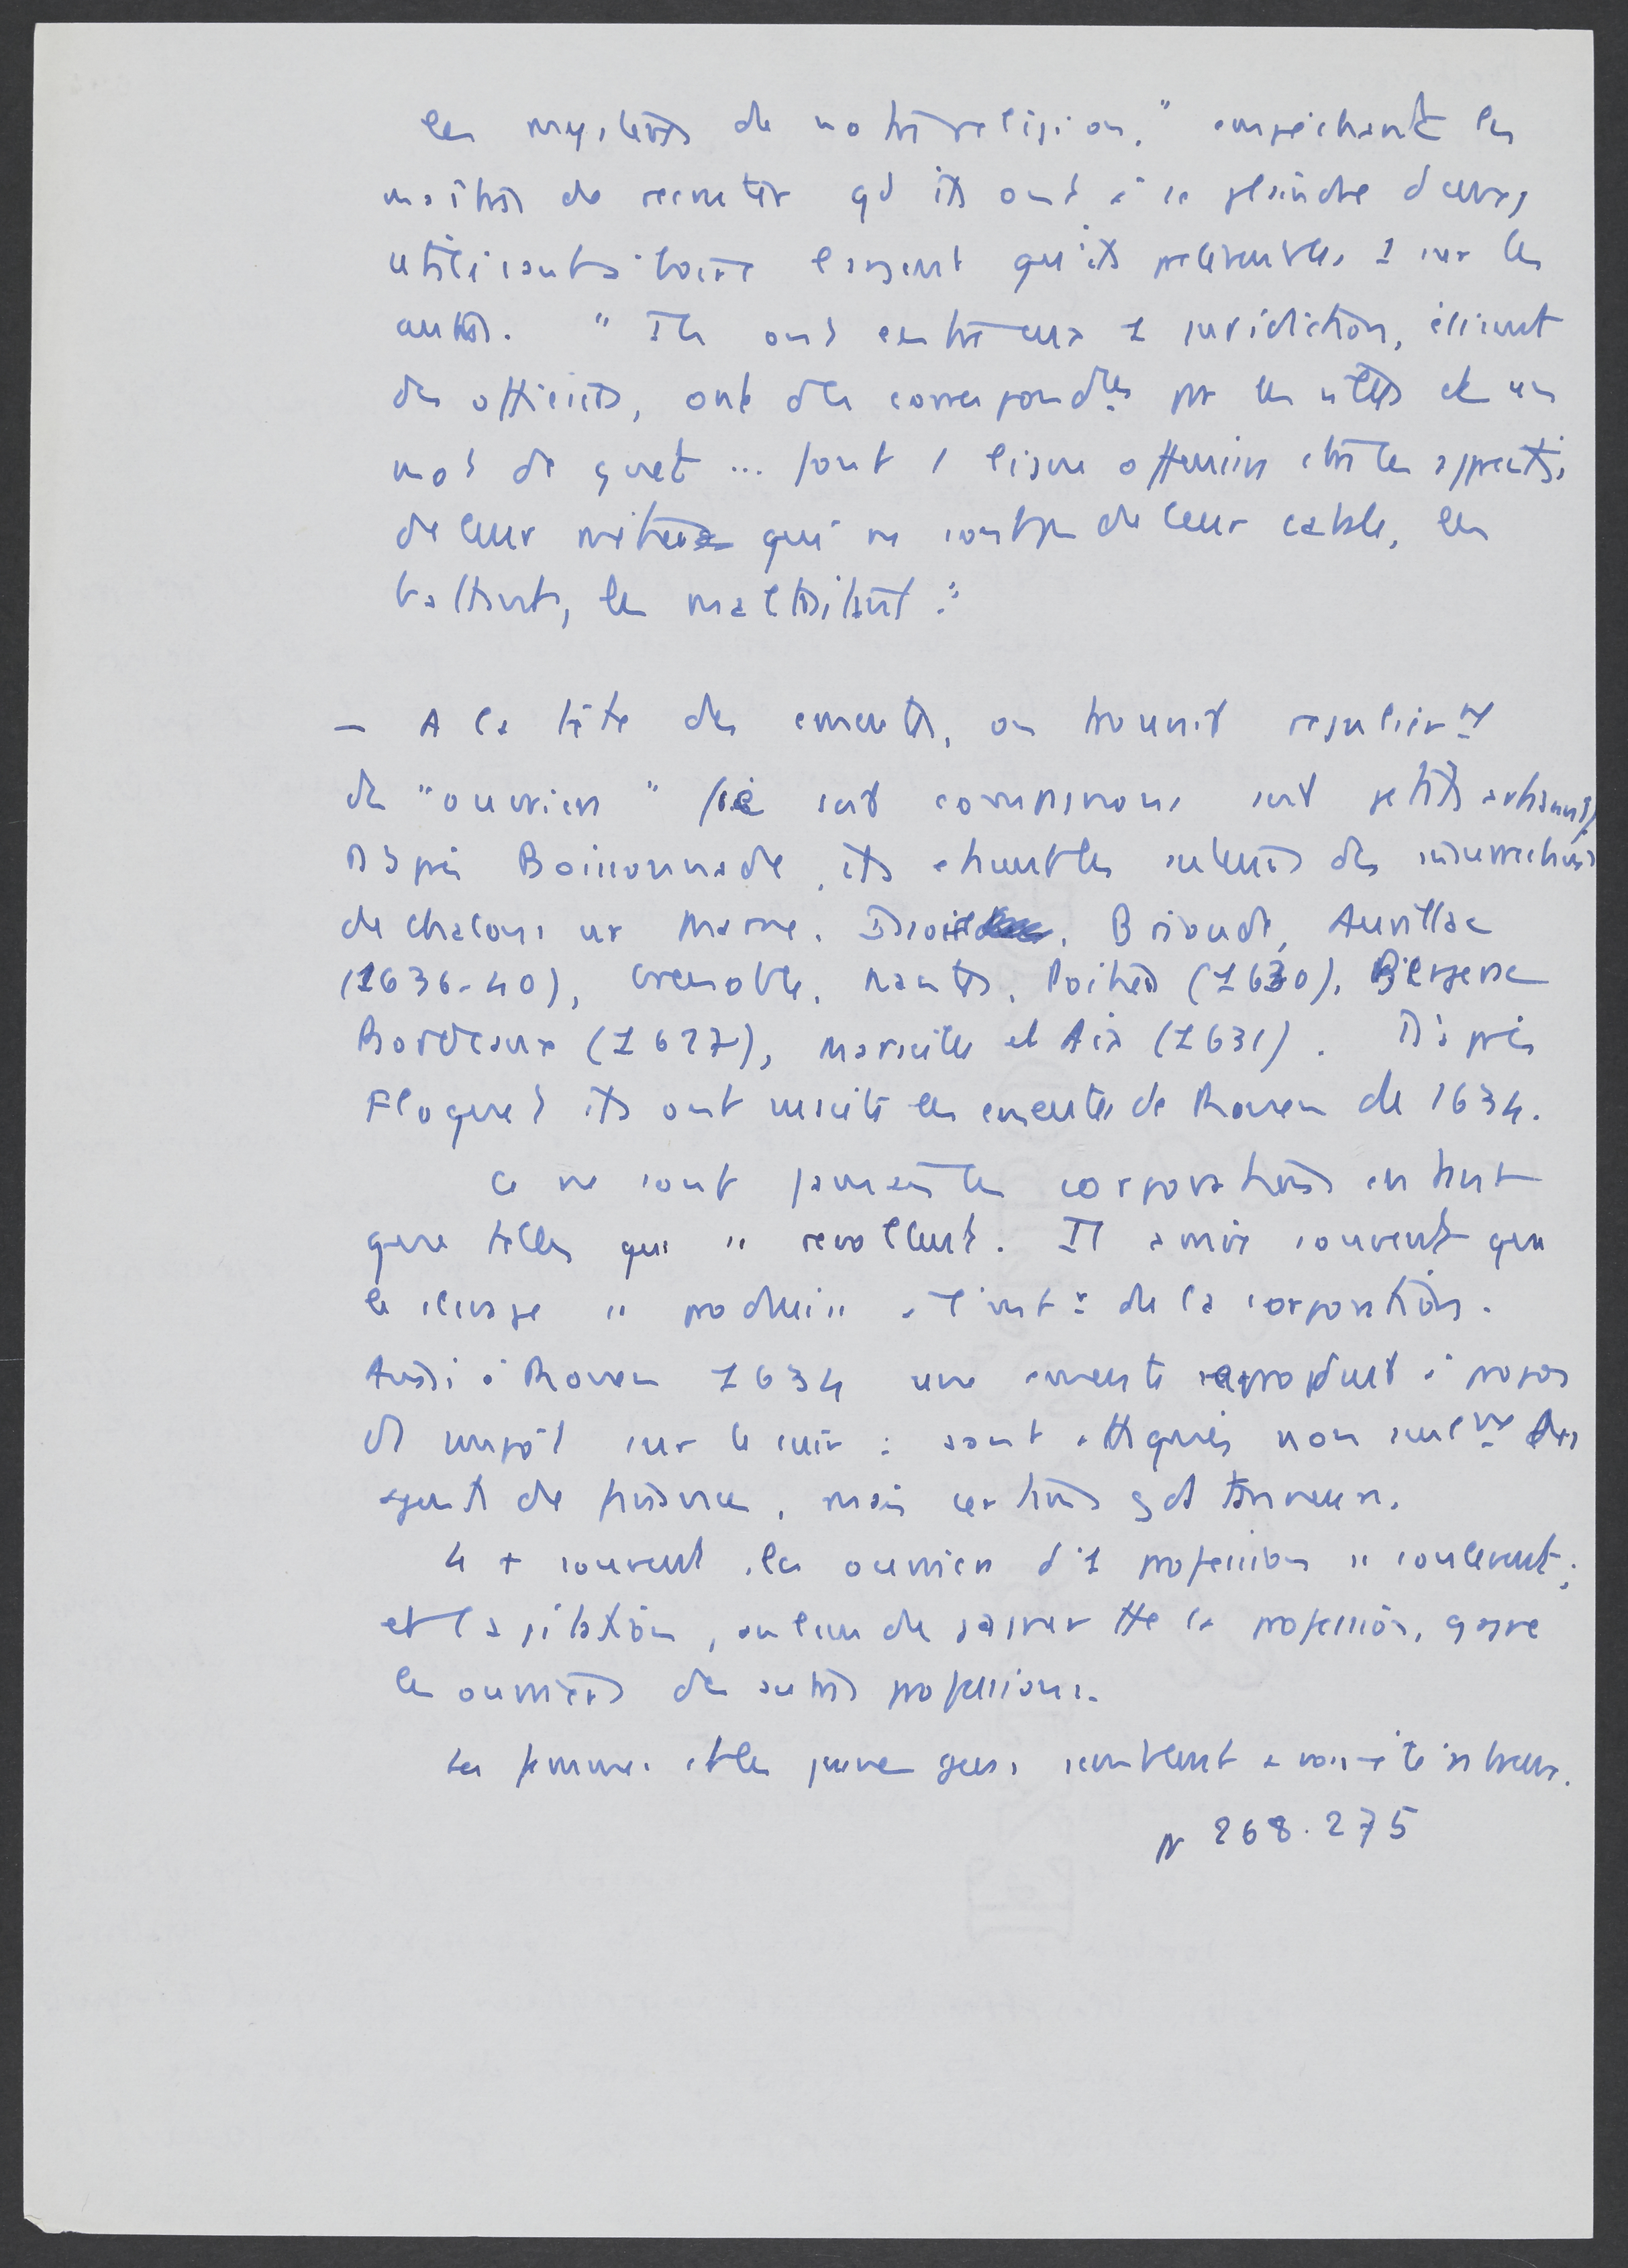 les mystères de notre religion." empêchant les
maîtres de recruter qd ils ont à se plaindre d'eux,
utilisant à boire l'argent qu'ils prélèvent les 1 sur les
autres. "Ils ont entre eux 1 juridiction, élisent
des officiers, ont des correspondces ds les villes et un
mot de guet ... font 1 ligue offensive ctre les apprentis
de leur métier qui ne sont pas de leur cabale, les
battent, les maltraitent."
— A la tête des émeutes, on trouvait régulièrmt
des "ouvriers" (ie soit compagnons soit petits artisans)
D'après Boissonnade, ils st les auteurs des insurrections
de Chalons sur Marne, Brioude, Aurillac
(1636-40), Grenoble, Nantes, Poitiers (1630), Bergerac
Bordeaux (1627), Marseille et Aix (1631). D'après
Floquet ils ont suscité les émeutes de Rouen de 1634.
Ce ne sont jamais les corporations en tant
que telles qui se révoltent. Il arrive souvent que
le clivage se produise à l'intr de la corporation.
Aussi à Rouen 1634 une émeute se produit à propos
d'1 impôt sur le cuir : sont attaqués non seulmt des
agents de finance, mais certains gds tanneurs.
Le + souvent, les ouvriers d'1 profession se soulèvent;
et l'agitation, au lieu de gagner tte la profession, gagne
les ouvriers des autres professions.
Les femmes et les jeunes gens semblent avoir été nbreux.
p 268.275